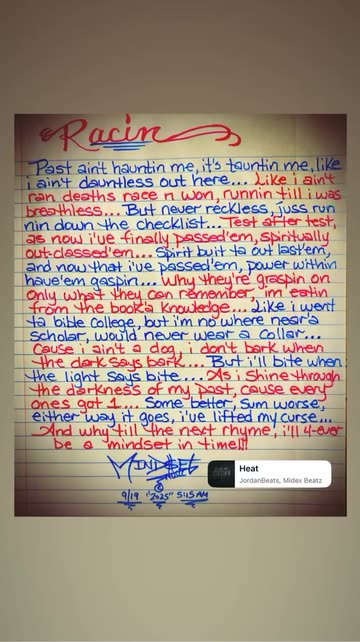 Racin
Past ain't hauntin me, it's tauntin me, like
i ain't dauntless out here... Like i ain't
ran deaths race n won, runnin till i was
breathless... But never reckless, juss run
nin down the checklist... Test after test,
as now i've finally passed'em, spiritually
out-classed'em... Spirit buit ta out last'em,
and now that i've passed'em, power within
have'em gaspin... Why they're graspin on
only what they can remember, im eatin
from the book'a knowledge... Like i went
ta bible college, but i'm no where near'a
scholar, would never wear a collar...
Cause i ain't a dog, i don't bark when
the dark says bark.... But i'll bite when
the light says bite.... As i shine through
the darkness of my past, cause every
ones got 1... Some better, sum worse,
either way it goes, i've lifted my curse...
And why till the next rhyme, i'll 4-ever
be a mindset in time!!!
MIND$ET
9/19 "2025" 5:15 AM
Heat
JordanBeats, Midex Beatz